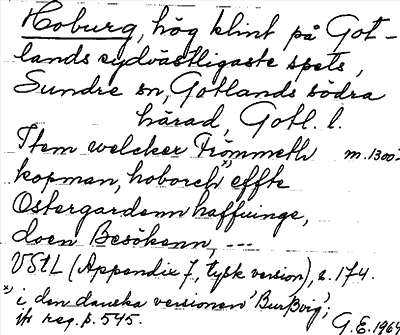 Hoburg, hög klint på Got-
lands sydvästligaste spets,
Sundre sn, Gotlands södra
härad, Gotl. l.
Item welcker Frömmeth m. 1300-
kopman, hoborch ˣ⁾ effte
Ostergardenn haffuinge,
doen Besökenn, ---
VStL (Appendix 7, tysk version), s. 174.
ˣ⁾ i den danska versionen 'Burßvig';
jfr reg. p. 545.
G.E. 1964